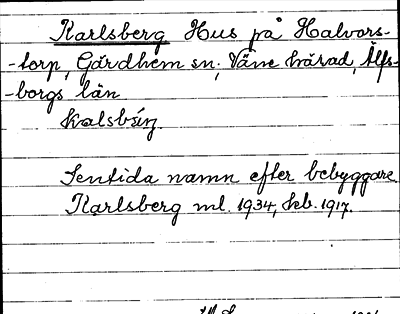 Karlsberg Hus på Halvors-
-torp, Gärdhem sn., Väne härad, Älfs-
-borgs län
Sentida namn efter bebyggare
Karlsberg ml. 1934, kb. 1917.